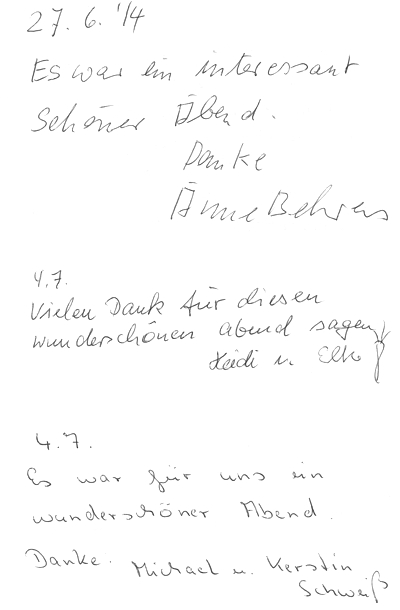 27. 6. '14
Es war ein interessant
schöner Abend.
Danke
Änne Behrens
4.7.
Vielen Dank für diesen
wunderschönen abend sagen
Heidi u. Elke
4.7.
Es war für uns ein
wunderschöner Abend.
Danke. Michael u. Kerstin
Schweiß